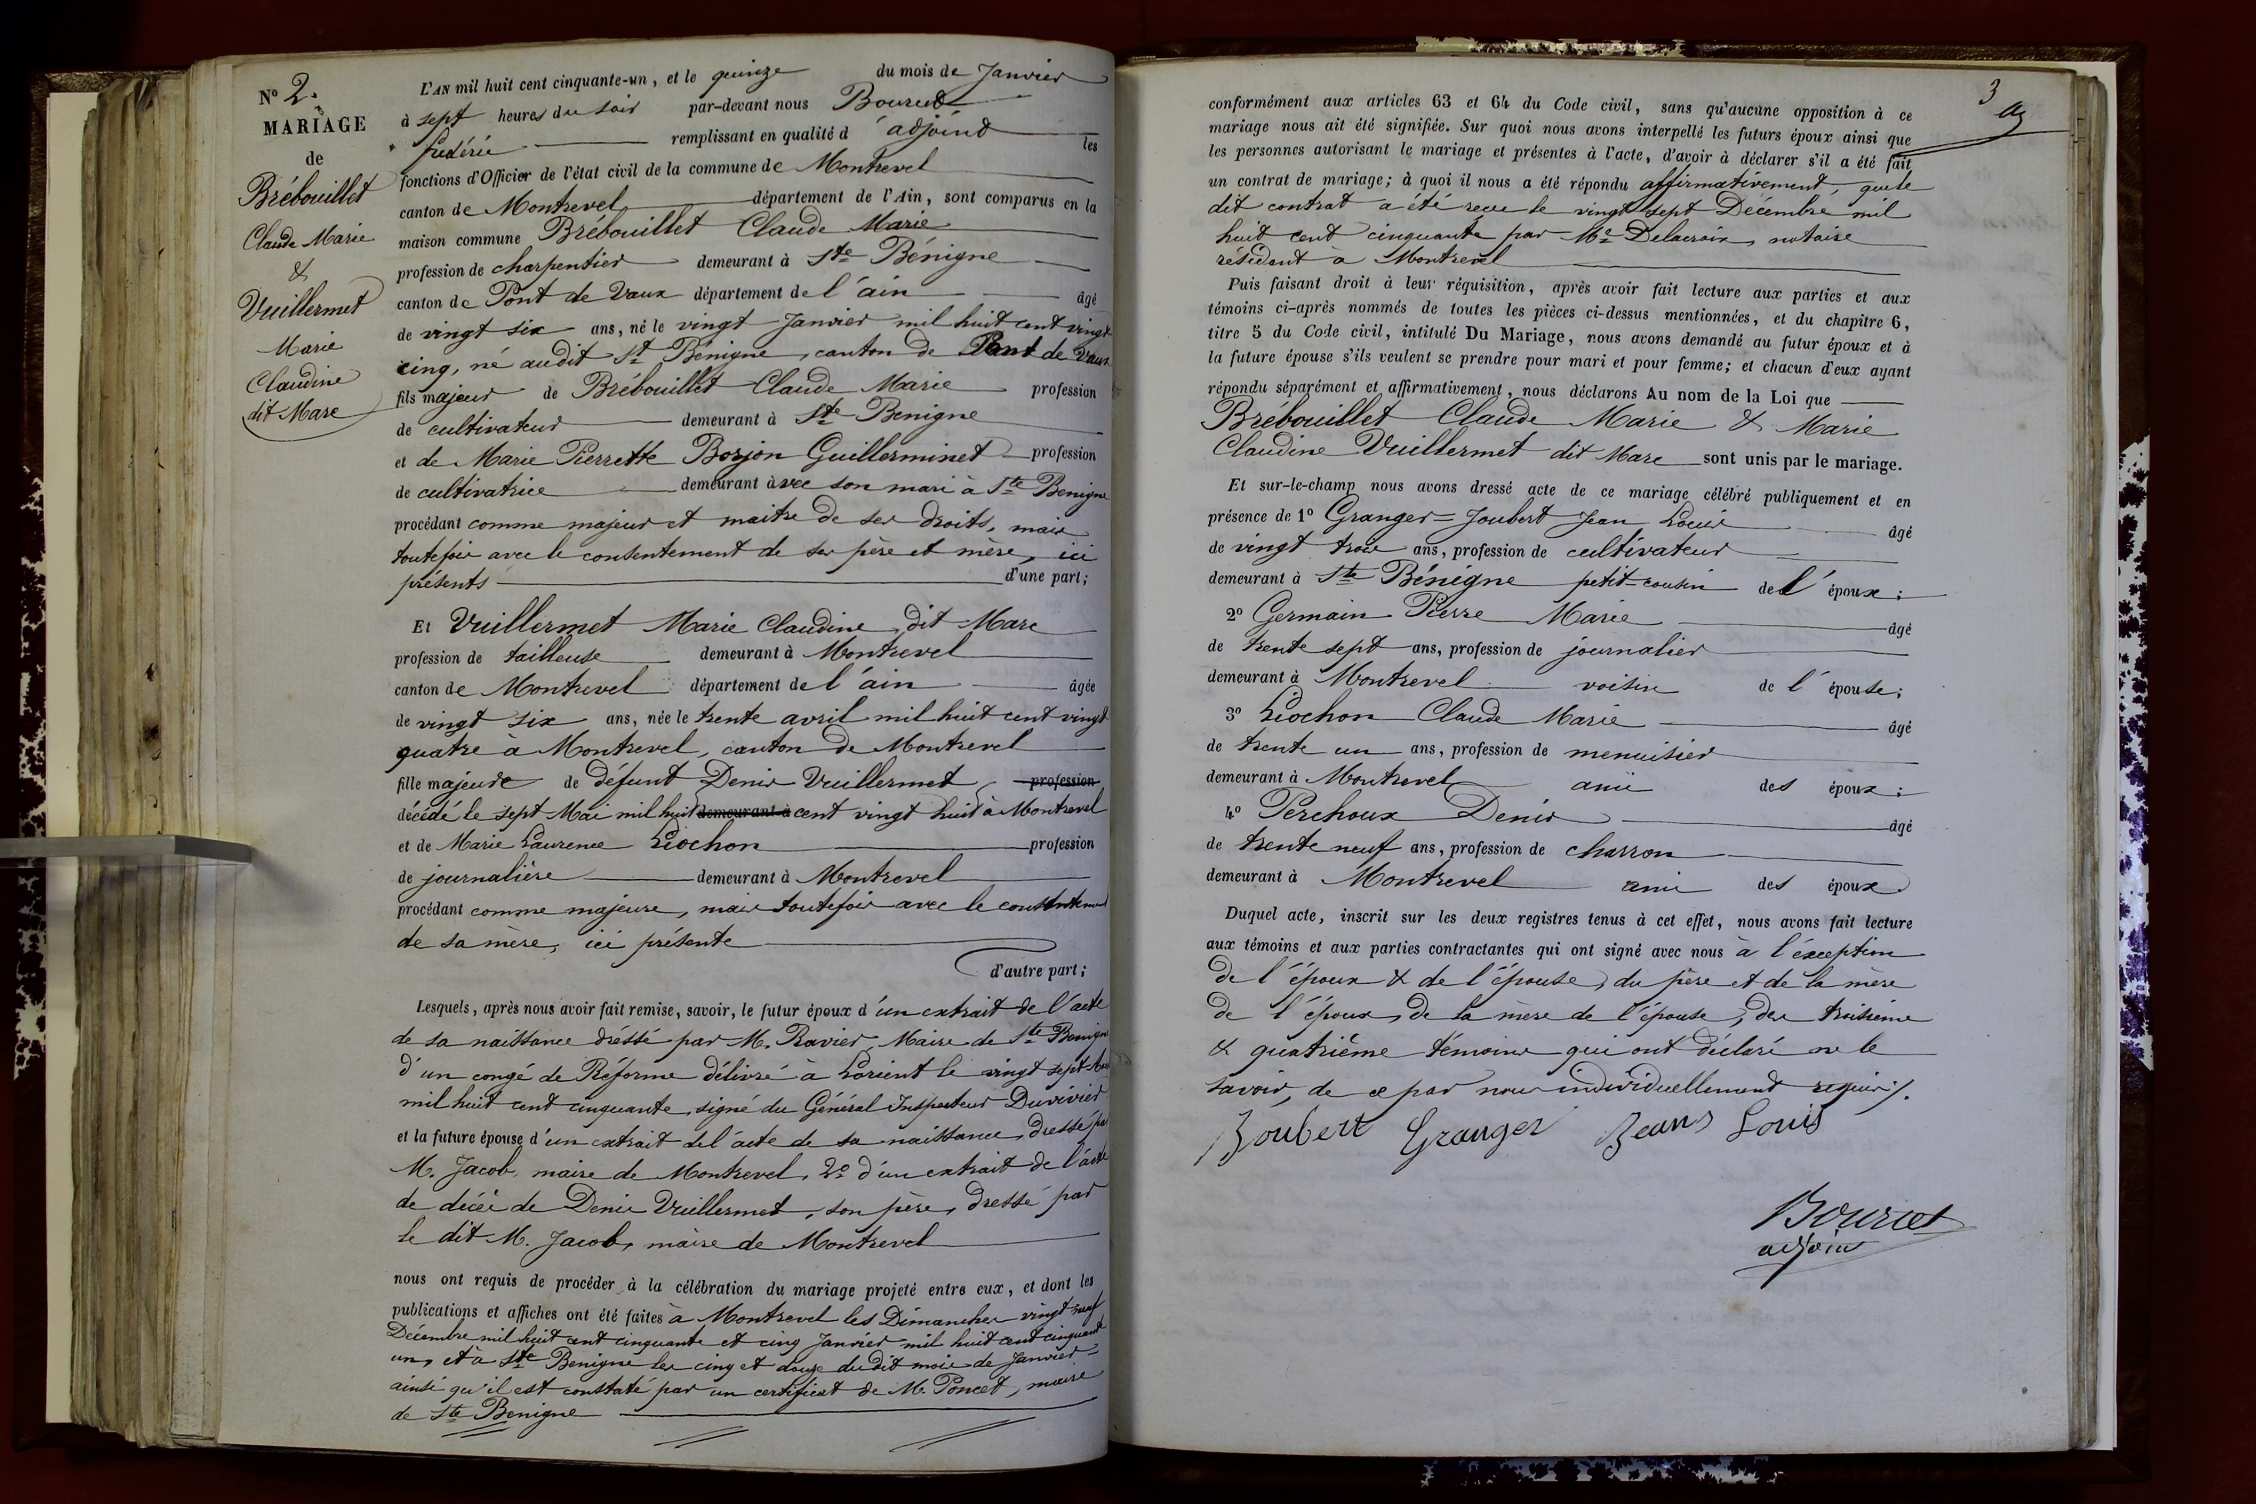 N° 2.
MARIAGE
de
Brébouillet
Claude Marie
&
Vuillermet
Marie
Claudine
dit Marc
L'AN mil huit cent cinquante-un, et le quinze du mois de Janvier
à sept heures du soir par-devant nous Bourcet
frédéric remplissant en qualité d'adjoint les
fonctions d'Officier de l'état civil de la commune de Montrevel
canton de Montrevel département de l'Ain, sont comparus en la
maison commune Brébouillet Claude Marie
profession de charpentier demeurant à Ste Bénigne
canton de Pont de Vaux département de l'ain âgé
de vingt six ans, né le vingt Janvier mil huit cent vingt
cinq, né audit St Bénigne, canton de Pont de Vaux
fils majeur de Brébouillet Claude Marie profession
de cultivateur demeurant à Ste Benigne
et de Marie Pierrette Borjon Guillerminet profession
de cultivatrice demeurant avec son mari à Ste Benigne
procédant comme majeur et maitre de ses droits, mais
toutefois avec le consentement de ses père et mère, ici
présents d'une part;
Et Vuillermet Marie Claudine, dit Marc
profession de tailleuse demeurant à Montrevel
canton de Montrevel département de l'ain âgée
de vingt six ans, née le trente avril mil huit cent vingt
quatre à Montrevel, canton de Montrevel
fille majeure de défunt Denis Vuillermet profession
décédé le sept Mai mil huit demeurant à cent vingt huit à Montrevel
et de Marie Laurence Liochon profession
de journalière demeurant à Montrevel
procédant comme majeure, mais toutefois avec le consentement
de sa mère, ici présente
d'autre part;
Lesquels, après nous avoir fait remise, savoir, le futur époux d'un extrait de l'acte
de sa naissance dréssé par M. Ravier, Maire de Ste Benigne
d'un congé de Réforme délivré à Lorient le vingt sept
mil huit cent cinquante, signé du Général Inspecteur Duvivier
et la future épouse d'un extrait de l'acte de sa naissance, dressé par
M. Jacob, maire de Montrevel, 2° d'un extrait de l'acte
de décès de Denis Vuillermet, son père, dressé par
le dit M. Jacob, maire de Montrevel
nous ont requis de procéder à la célébration du mariage projeté entre eux, et dont les
publications et affiches ont été faites à Montrevel les Dimanches vingt neuf
Décembre mil huit cent cinquante et cinq Janvier mil huit cent cinquante
un, et à Ste Benigne les cinq et douze dudit mois de Janvier
ainsi qu'il est constaté par un certificat de M. Poncet, maire
de Ste Benigne
3
conformément aux articles 63 et 64 du Code civil, sans qu'aucune opposition à ce
mariage nous ait été signifiée. Sur quoi nous avons interpellé les futurs époux ainsi que
les personnes autorisant le mariage et présentes à l'acte, d'avoir à déclarer s'il a été fait
un contrat de mariage; à quoi il nous a été répondu affirmativement, que le
dit contrat a été recu le vingt sept Décembre mil
huit cent cinquante par Me Delacroix, notaire
résidant à Montrevel
Puis faisant droit à leur réquisition, après avoir fait lecture aux parties et aux
témoins ci-après nommés de toutes les pièces ci-dessus mentionnées, et du chapitre 6,
titre 5 du Code civil, intitulé Du Mariage, nous avons demandé au futur époux et à
la future épouse s'ils veulent se prendre pour mari et pour femme; et chacun d'eux ayant
répondu séparément et affirmativement, nous déclarons Au nom de la Loi que
Brébouillet Claude Marie & Marie
Claudine Vuillermet dit Marc sont unis par le mariage.
Et sur-le-champ nous avons dressé acte de ce mariage célébré publiquement et en
présence de 1° Granger=Joubert Jean Louis âgé
de vingt trois ans, profession de cultivateur
demeurant à Ste Bénigne petit-cousin de l'époux;
2° Germain Pierre Marie âgé
de trente sept ans, profession de journalier
demeurant à Montrevel voisin de l'épouse;
3° Liochon Claude Marie âgé
de trente un ans, profession de menuisier
demeurant à Montrevel ami des époux;
4° Perchoux Denis âgé
de trente neuf ans, profession de charron
demeurant à Montrevel ami des époux
Duquel acte, inscrit sur les deux registres tenus à cet effet, nous avons fait lecture
aux témoins et aux parties contractantes qui ont signé avec nous à l'éxception
de l'époux & de l'épouse, du père et de la mère
de l'époux, de la mère de l'épouse, des troisième
& quatrième témoins qui ont déclaré ne le
savoir, de ce par nous individuellement requis /.
Joubert Granger Jean Louis
Bourcet
adjoint